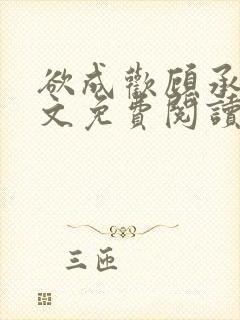 欲成歡顧承
文免費閱讀
三匝